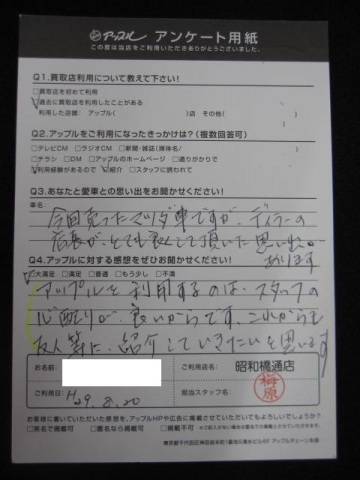 アップル アンケート用紙
この度は当店をご利用いただきありがとうございました。
Q1.買取店利用について教えて下さい!
□買取店を初めて利用
☑過去に買取店を利用したことがある
利用した店舗: アップル( )店 その他( )
Q2.アップルをご利用になったきっかけは?(複数回答可)
□テレビCM □ラジオCM □新聞・雑誌(媒体名/ )
□チラシ □DM □アップルのホームページ □通りがかりで
☑利用経験があるので ☑紹介 □スタッフに誘われて
Q3.あなたと愛車との思い出をお聞かせください!
車名:
今回売ったマツダ車ですが、ディラーの
店長が、とても良くして頂いた思い出が
あります
Q4.アップルに対する感想をぜひお聞かせください!
☑大満足 □満足 □普通 □もう少し □不満
アップルを利用するのは、スタッフの
心配りが、良いからです、これからも
友人等に、紹介していきたいと思います
お名前:
ご利用店名: 昭和橋通店
ご利用日: H29.8.20
担当スタッフ名: 梅原
お客様に書いていただいた感想を、アップルHPや広告に掲載させていただいてもよろしいでしょうか?
□実名で掲載可 □匿名なら掲載可 □掲載不可